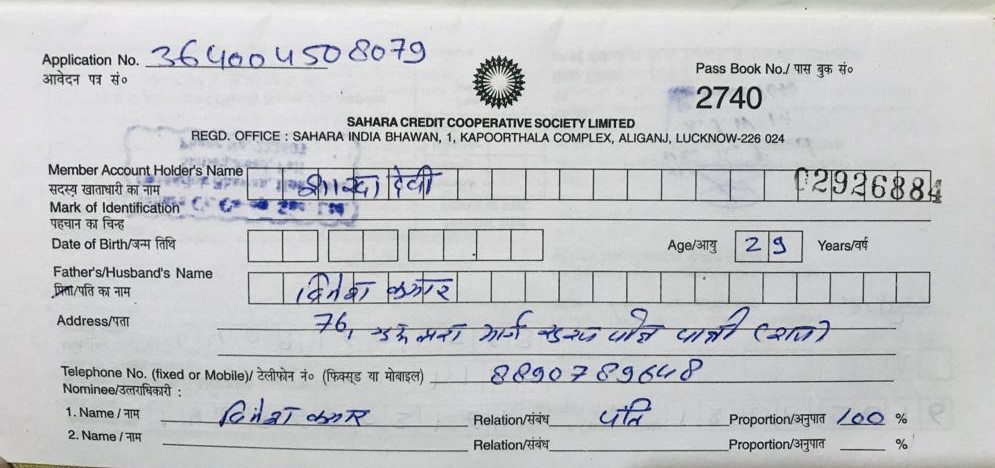 Application No. 364004508079
आवेदन पत्र सं०
Pass Book No./ पास बुक सं०
2740
SAHARA CREDIT COOPERATIVE SOCIETY LIMITED
REGD. OFFICE : SAHARA INDIA BHAWAN, 1, KAPOORTHALA COMPLEX, ALIGANJ, LUCKNOW-226 024
Member Account Holder's Name
सदस्य खाताधारी का नाम शारदा देवी 02926884
Mark of Identification
पहचान का चिन्ह
Date of Birth/जन्म तिथि Age/आयु 29 Years/वर्ष
Father's/Husband's Name
पिता/पति का नाम दिनेश कुमार
Address/पता 76, मार्ग पाली (राज)
Telephone No. (fixed or Mobile)/ टेलीफोन नं० (फिक्सड या मोबाइल) 8890789648
Nominee/उत्तराधिकारी :
1. Name / नाम दिनेश कुमार Relation/संबंध पति Proportion/अनुपात 100 %
2. Name / नाम Relation/संबंध Proportion/अनुपात %